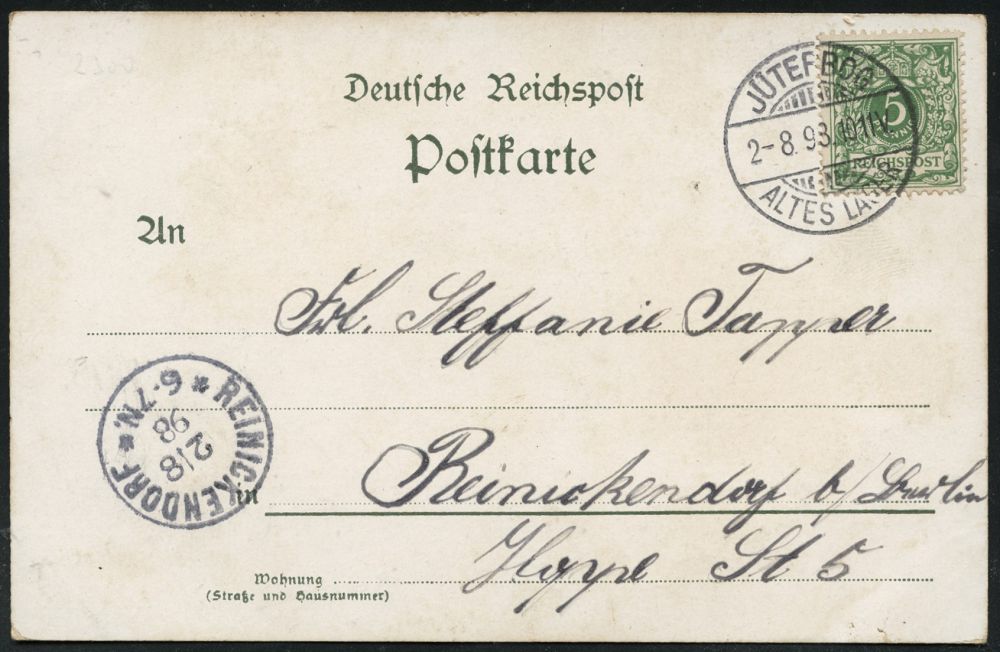 2300
Deutsche Reichspost
Postkarte
JÜTERBOG
2-8.98.1011V.
ALTES LAGER
5
REICHSPOST
An
Frl. Steffanie Tapper
REINICKENDORF
* 6-7N. *
2 8
98
in Reinickendorf b/ Berlin
Hoppe St 5
Wohnung
(Straße und Hausnummer)